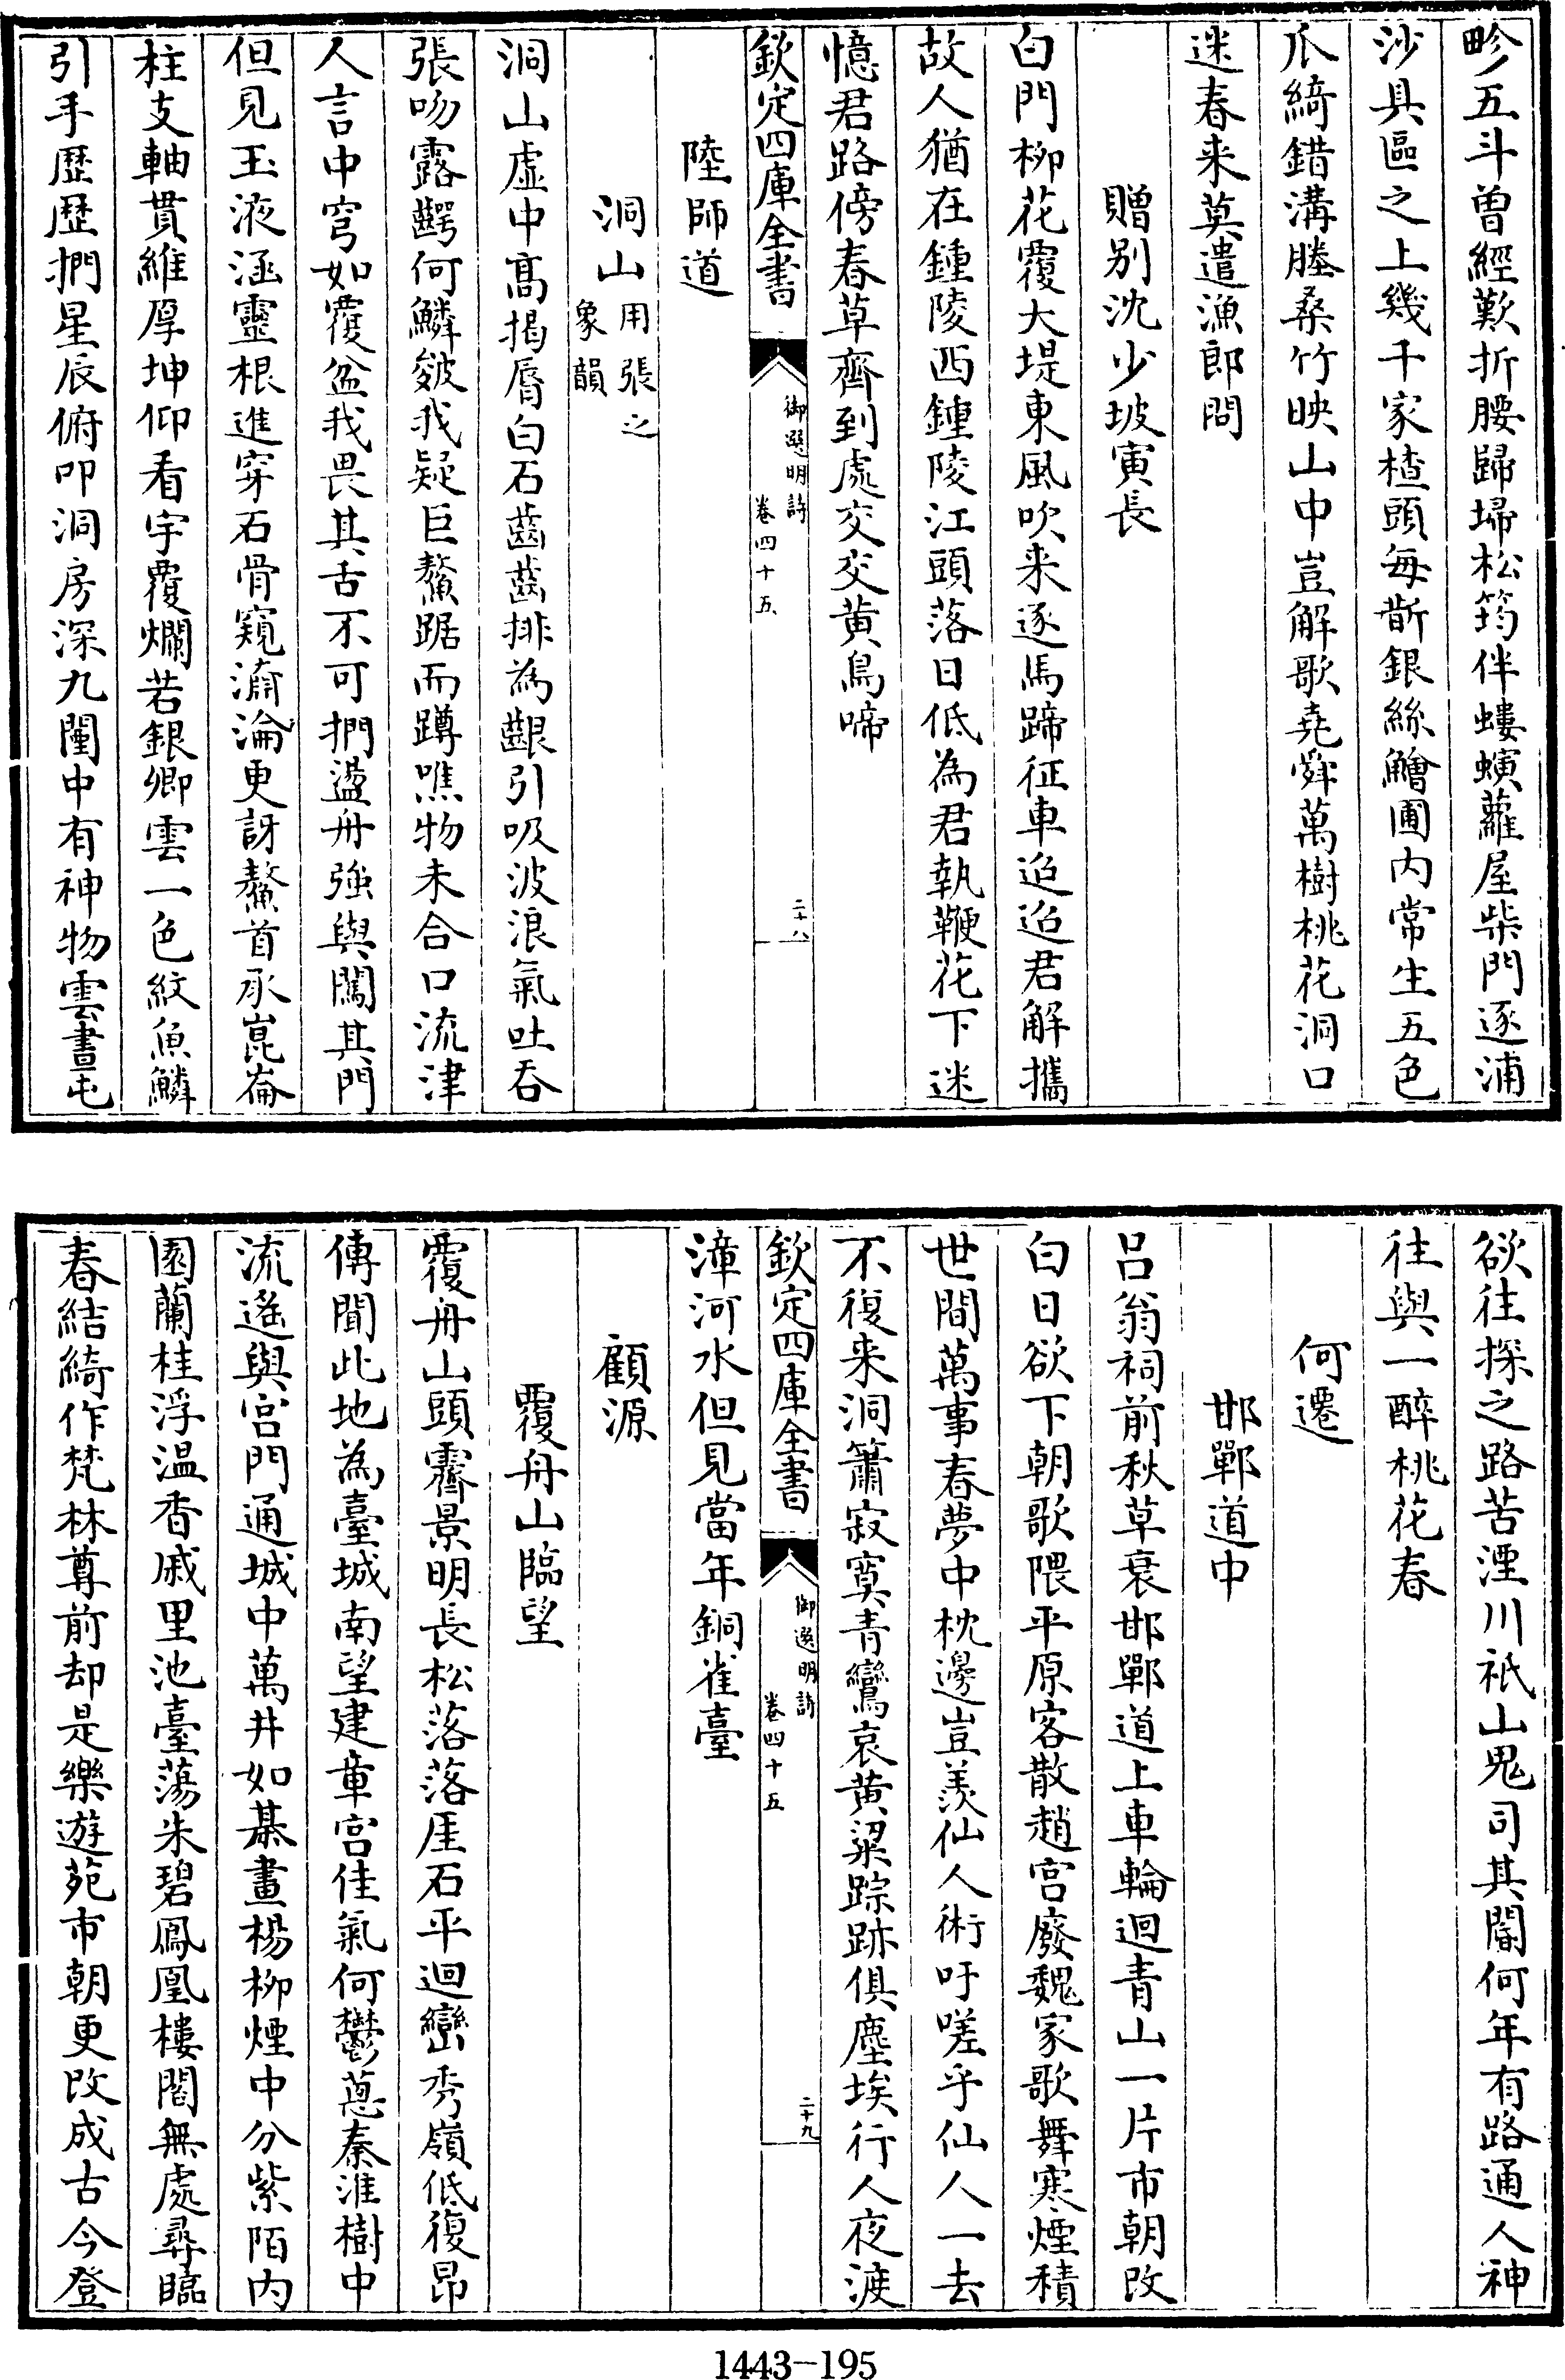 畛五斗曽經歎折腰歸埽松筠伴螻螾蘿屋柴門逐浦
沙具區之上幾千家楂頭每斮銀絲鱠圃内常生五色
爪綺錯溝塍桑竹映山中豈解歌堯舜萬樹桃花洞口
迷春来莫遣漁郎問
贈别沈少坡寅長
白門栁花覆大堤東風吹来逐馬蹄征車迢迢君解攜
故人猶在鍾陵西鍾陵江頭落日低為君執鞭花下迷
憶君路傍春草齊到處交交黄鳥啼
欽定四庫全書
御選明詩
卷四十五
二十八
陸師道
洞山用張之象韻
洞山虛中髙揭脣白石齒齒排為齦引吸波浪氣吐吞
張吻露齶何鱗皴我疑巨鰲踞而蹲噍物未合口流津
人言中穹如覆盆我畏其舌不可捫盪舟強與闖其門
但見玉液涵靈根進穿石骨窺㵸淪更訝鰲首承崑崙
柱支軸貫維厚坤仰看宇覆爛若銀卿雲一色紋魚鱗
引手歴歴捫星辰俯叩洞房深九閽中有神物雲晝屯
欲往探之路苦湮川祇山鬼司其閽何年有路通人神
往與一醉桃花春
何遷
邯鄲道中
吕翁祠前秋草衰邯鄲道上車輪迴青山一片市朝改
白日欲下朝歌隈平原客散趙宫廢魏家歌舞寒煙積
世間萬事春夢中枕邊豈羡仙人術吁嗟乎仙人一去
不復来洞簫寂寞青鸞哀黄粱踪跡俱塵埃行人夜渡
欽定四庫全書
御選明詩
卷四十五
二十九
漳河水但見當年銅雀臺
顧源
覆舟山臨望
覆舟山頭霽景明長松落落厓石平迴巒秀嶺低復昂
傳聞此地為臺城南望建章宫佳氣何鬱蔥秦淮樹中
流遙與宫門通城中萬井如棊畫楊栁煙中分紫陌内
園蘭桂浮温香戚里池臺蕩朱碧鳳凰樓閣無處尋臨
春結綺作梵林尊前却是樂遊苑市朝更改成古今登
1443—195